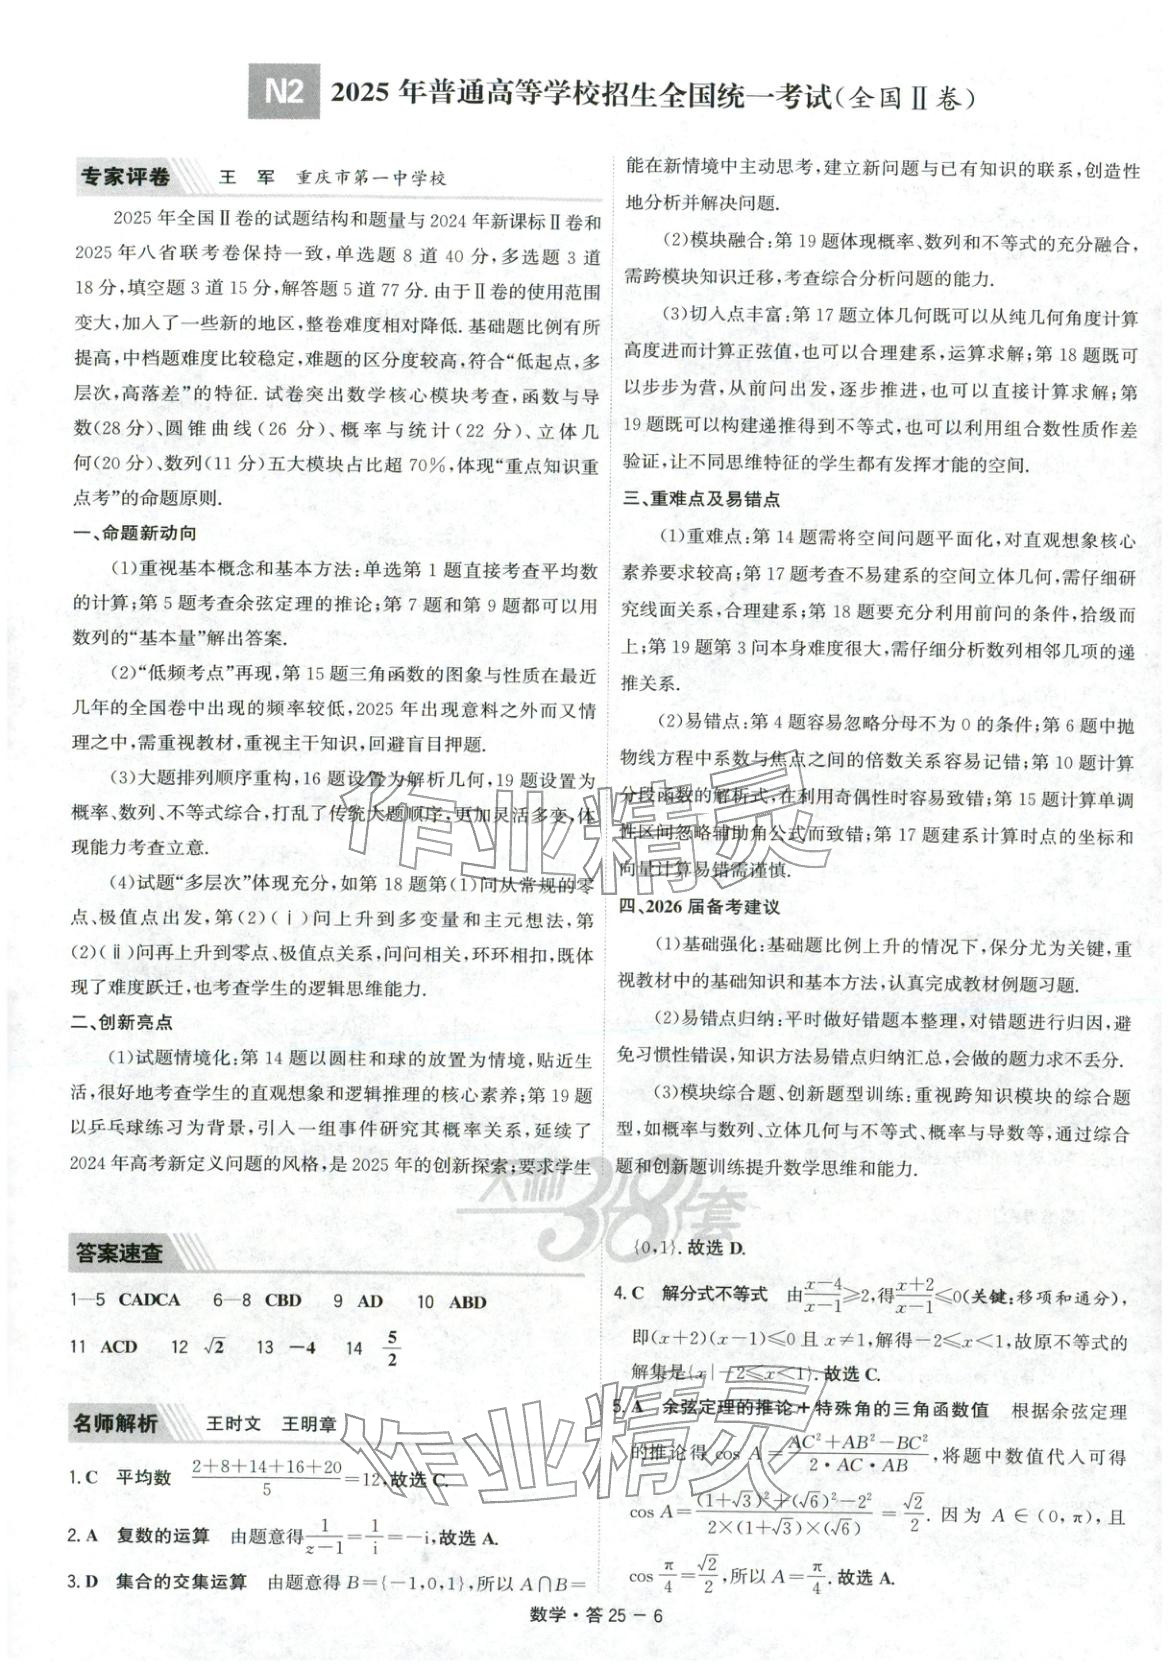 N2 2025年普通高等学校招生全国统一考试(全国Ⅱ卷)
专家评卷 王 军 重庆市第一中学校
2025年全国Ⅱ卷的试题结构和题量与2024年新课标Ⅱ卷和
2025年八省联考卷保持一致,单选题8道40分,多选题3道
18分,填空题3道15分,解答题5道77分.由于Ⅱ卷的使用范围
变大,加入了一些新的地区,整卷难度相对降低.基础题比例有所
提高,中档题难度比较稳定,难题的区分度较高,符合“低起点,多
层次,高落差”的特征.试卷突出数学核心模块考查,函数与导
数(28分)、圆锥曲线(26分)、概率与统计(22分)、立体几
何(20分)、数列(11分)五大模块占比超70%,体现“重点知识重
点考”的命题原则.
一、命题新动向
(1)重视基本概念和基本方法:单选第1题直接考查平均数
的计算;第5题考查余弦定理的推论;第7题和第9题都可以用
数列的“基本量”解出答案.
(2)“低频考点”再现,第15题三角函数的图象与性质在最近
几年的全国卷中出现的频率较低,2025年出现意料之外而又情
理之中,需重视教材,重视主干知识,回避盲目押题.
(3)大题排列顺序重构,16题设置为解析几何,19题设置为
概率、数列、不等式综合,打乱了传统大题顺序,更加灵活多变,体
现能力考查立意.
(4)试题“多层次”体现充分,如第18题第(1)问从常规的零
点、极值点出发,第(2)(ⅰ)问上升到多变量和主元想法,第
(2)(ⅱ)问再上升到零点、极值点关系,问问相关,环环相扣,既体
现了难度跃迁,也考查学生的逻辑思维能力.
二、创新亮点
(1)试题情境化:第14题以圆柱和球的放置为情境,贴近生
活,很好地考查学生的直观想象和逻辑推理的核心素养;第19题
以乒乓球练习为背景,引入一组事件研究其概率关系,延续了
2024年高考新定义问题的风格,是2025年的创新探索;要求学生
能在新情境中主动思考,建立新问题与已有知识的联系,创造性
地分析并解决问题.
(2)模块融合:第19题体现概率、数列和不等式的充分融合,
需跨模块知识迁移,考查综合分析问题的能力.
(3)切入点丰富:第17题立体几何既可以从纯几何角度计算
高度进而计算正弦值,也可以合理建系,运算求解;第18题既可
以步步为营,从前问出发,逐步推进,也可以直接计算求解;第
19题既可以构建递推得到不等式,也可以利用组合数性质作差
验证,让不同思维特征的学生都有发挥才能的空间.
三、重难点及易错点
(1)重难点:第14题需将空间问题平面化,对直观想象核心
素养要求较高;第17题考查不易建系的空间立体几何,需仔细研
究线面关系,合理建系;第18题要充分利用前问的条件,拾级而
上;第19题第3问本身难度很大,需仔细分析数列相邻几项的递
推关系.
(2)易错点:第4题容易忽略分母不为0的条件;第6题中抛
物线方程中系数与焦点之间的倍数关系容易记错;第10题计算
分段函数的解析式,在利用奇偶性时容易致错;第15题计算单调
性区间忽略辅助角公式而致错;第17题建系计算时点的坐标和
向量计算易错需谨慎.
四、2026届备考建议
(1)基础强化:基础题比例上升的情况下,保分尤为关键,重
视教材中的基础知识和基本方法,认真完成教材例题习题.
(2)易错点归纳:平时做好错题本整理,对错题进行归因,避
免习惯性错误,知识方法易错点归纳汇总,会做的题力求不丢分.
(3)模块综合题、创新题型训练:重视跨知识模块的综合题
型,如概率与数列、立体几何与不等式、概率与导数等,通过综合
题和创新题训练提升数学思维和能力.
天利38套
答案速查
1—5 CADCA 6—8 CBD 9 AD 10 ABD
11 ACD 12 √2 13 −4 14 5/2
名师解析 王时文 王明章
1. C 平均数 (2+8+14+16+20)/5=12,故选C.
2. A 复数的运算 由题意得1/(z−1)=1/i=−i,故选A.
3. D 集合的交集运算 由题意得B={−1,0,1},所以A∩B=
{0,1}.故选D.
4. C 解分式不等式 由(x−4)/(x−1)≥2,得(x+2)/(x−1)≤0(关键:移项和通分),
即(x+2)(x−1)≤0且x≠1,解得−2≤x<1,故原不等式的
解集是{x|−2≤x<1}.故选C.
5. A 余弦定理的推论+特殊角的三角函数值 根据余弦定理
的推论得cos A=(AC²+AB²−BC²)/(2·AC·AB),将题中数值代入可得
cos A=((1+√3)²+(√6)²−2²)/(2×(1+√3)×(√6))=√2/2.因为A∈(0,π),且
cos π/4=√2/2,所以A=π/4.故选A.
数学·答25－6
作业精灵
作业精灵